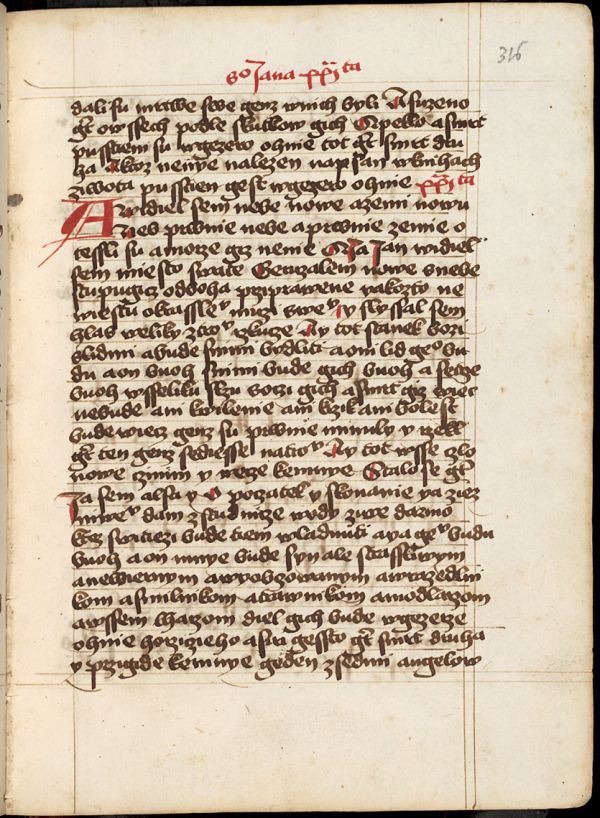 316
So Jana xxi ta
dali su mrtwe swe genz wnich byli A suzeno
gt o wssech podle skutkow gich A peklo a smrt
pussticni su wgezero ohnie tot gt smrt dru
ha A ktoz nenye nalezen napsan wknihach
ziwota pusstien gest wgezero ohnie xxi ta
A widiel sem nebe nowe a zemi nowu
Neb prwnie nebe a prwnie zemie o
tessli su a morze giz nenie A Ja Jan widiel
sem miesto swate Geruzalem nowe s nebe
stupugicz od boha prziprawene yakozto ne
wiestu okrasslenu muzi swemu y slyssal sem
hlas weliky z tronu rzkucze Ay tot stanek bozi
s lidmi a bude s nimi bydliti a oni lid geho bu
du a on buoh s nimi bude gich buoh a setrze
buoh wsseliku slzu s oczi gich a smrt giz wiec
nebude ani kwilenie ani krzik ani bolest
bude wiecz genz su prwnie minuly y rzekl
gt ten genz sediesse na tronu Ay tot wsse zlo
nowe czinim y wece ke mnye Stalo se gt
Ja sem alfa y O poczatek y skonanie ya ziez
niwemu dam z studnicze wody ziwe darmo
ktoz swiciezi bude tiem wladnuti a ya gemu budu
buoh a on mnye bude syn ale strassliwym
a newiernym a wyobczowanym a wrazedlni
kom a smilnikom a trawnikom a modlarzom
a wssem lharzom diel gich bude w gezerze
ohnie horziczieho a siri gessto gt smrt druha
y przigide ke mnye geden z sedmi angelow